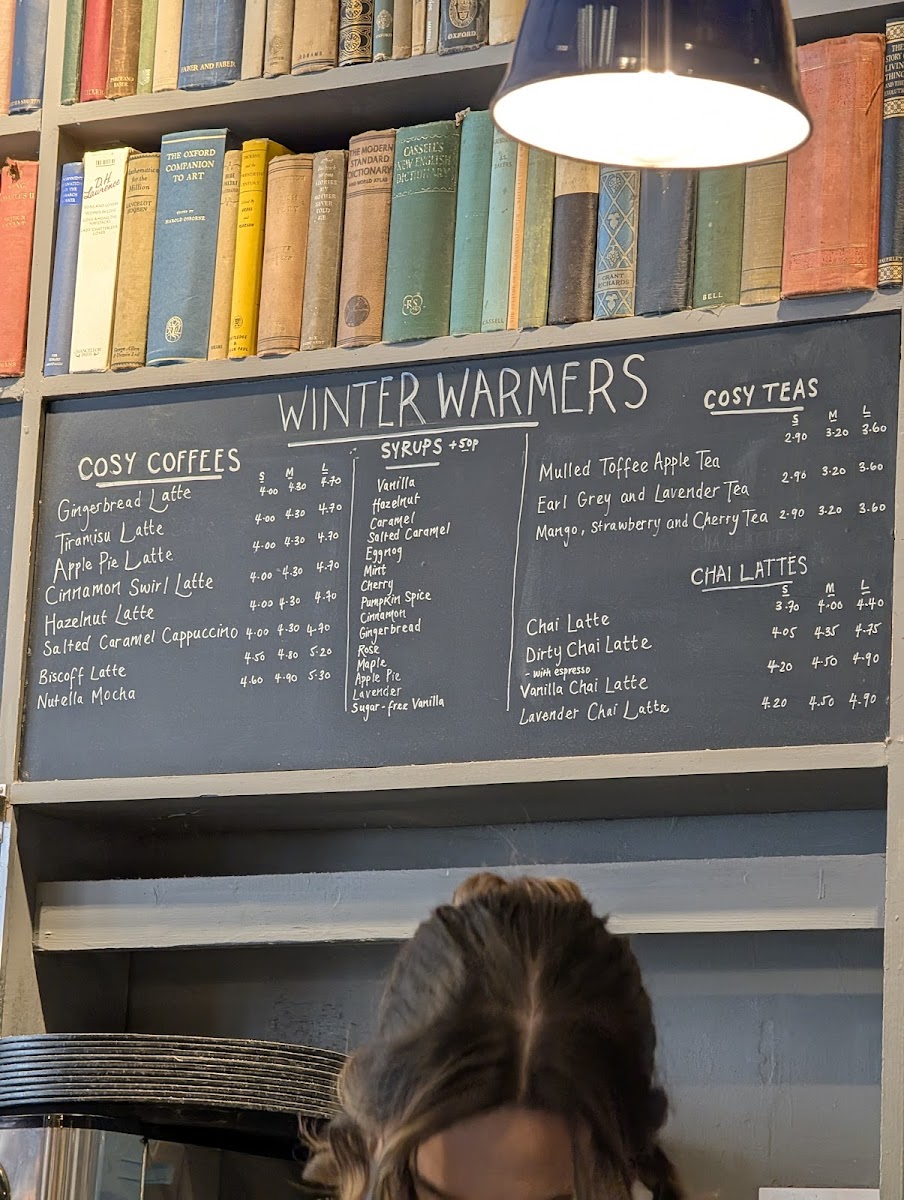 FABER AND FABER
OXFORD
THE OXFORD COMPANION TO ART
HAROLD OSBORNE
D.H. Lawrence
Mathematics for the Million
LANCELOT HOGBEN
THE MODERN STANDARD DICTIONARY AND WORLD ATLAS
CASSELL'S NEW ENGLISH DICTIONARY
CASSELL
GRANT RICHARDS
BELL
WINTER WARMERS
COSY COFFEES
S M L
Gingerbread Latte 4.00 4.30 4.70
Tiramisu Latte 4.00 4.30 4.70
Apple Pie Latte 4.00 4.30 4.70
Cinnamon Swirl Latte 4.00 4.30 4.70
Hazelnut Latte 4.00 4.30 4.70
Salted Caramel Cappuccino 4.00 4.30 4.70
Biscoff Latte 4.50 4.80 5.20
Nutella Mocha 4.60 4.90 5.30
SYRUPS +50p
Vanilla
Hazelnut
Caramel
Salted Caramel
Eggnog
Mint
Cherry
Pumpkin Spice
Cinnamon
Gingerbread
Rose
Maple
Apple Pie
Lavender
Sugar-free Vanilla
COSY TEAS
S M L
Mulled Toffee Apple Tea 2.90 3.20 3.60
Earl Grey and Lavender Tea 2.90 3.20 3.60
Mango, Strawberry and Cherry Tea 2.90 3.20 3.60
CHAI LATTES
S M L
Chai Latte 3.70 4.00 4.40
Dirty Chai Latte 4.05 4.35 4.75
- with espresso
Vanilla Chai Latte 4.20 4.50 4.90
Lavender Chai Latte 4.20 4.50 4.90